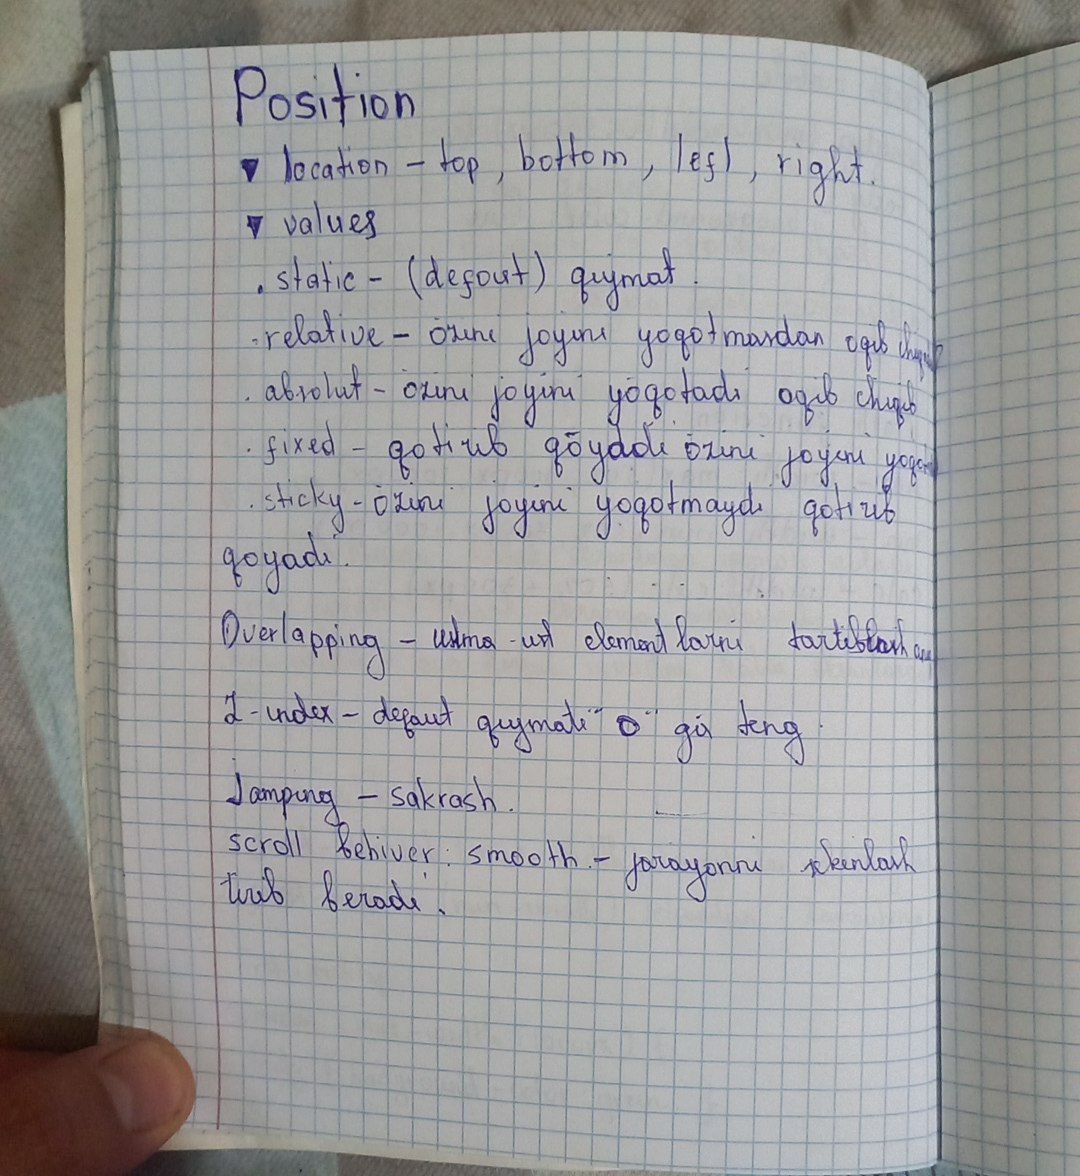 Position
▾ location - top, bottom, left, right.
▾ values
. static - (defout) qiymat.
. relative - ōzini joyini yoqotmasdan oqib
. absolut - ōzini joyini yōqotadi oqib chiqib
. fixed - qotirib qōyadi ōzini joyini
. sticky - ōzini joyini yoqotmaydi qotirib
qoyadi.
Overlapping - ustma-ust elementlarni tartiblash
Z-index - defaut qiymati "0" ga teng.
Jamping - sakrash.
scroll behiver: smooth. - jarayonni sekinlash
tirib beradi.